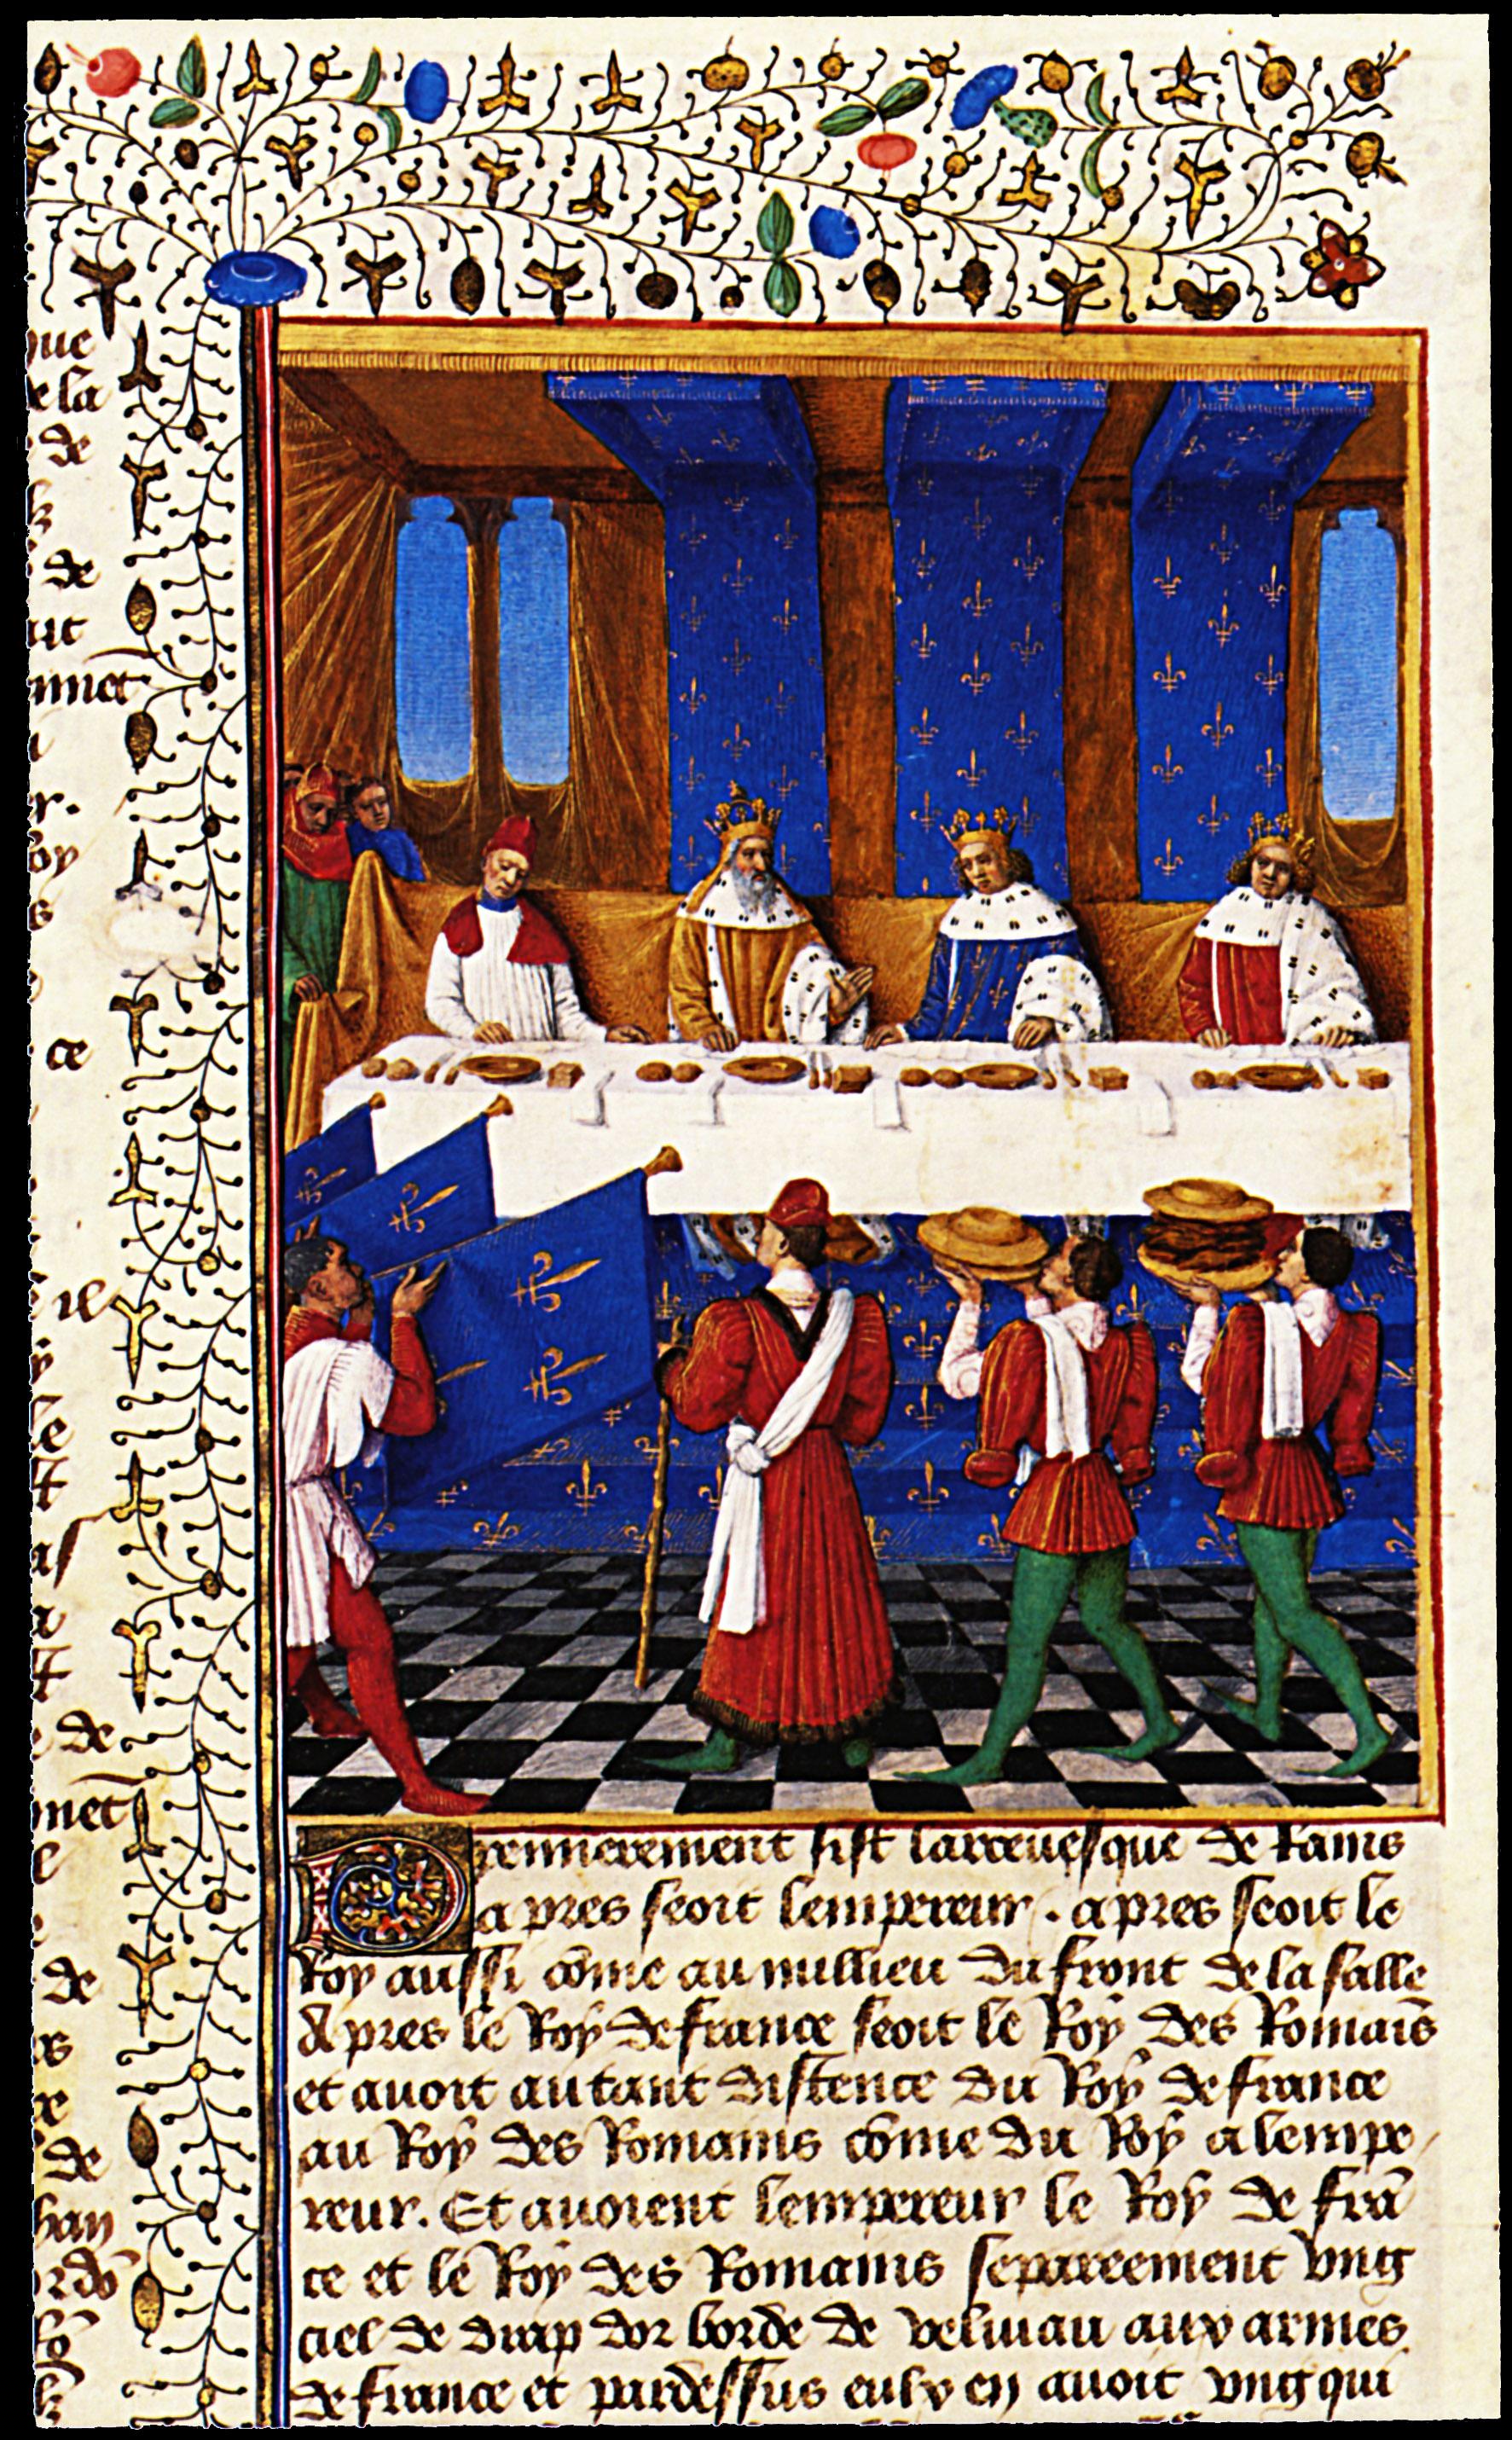 que
de la
de
de
ait
nnet
er.
Roy
ce
il
le
et
et
de
met
de
de
Premierement sist larceuesque de Rains
apres seoit lempereur . apres seoit le
Roy aussi cōme au millieu du front de la salle
Apres le Roy de france seoit le Roy des Romaīs
et auoit autant distence du Roy de france
au Roy des Romains cōme du Roy a lempe
reur. Et auoient lempereur le Roy de frā
ce et le Roy des Romains separeement vng
ciel de drap dor borde de veluiau aux armes
de france et pardessus eulx en auoit vng qui